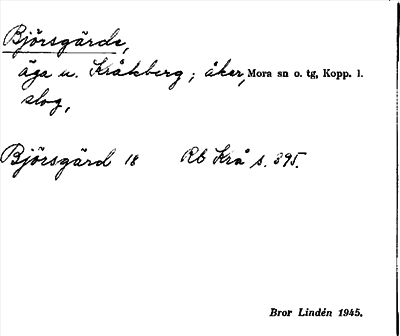 Björsgärde,
äga u. Kråkberg; åker, Mora sn o. tg, Kopp. l.
slog,
Björsgärd 18 Rb Krå s. 395.
Bror Lindén 1945.